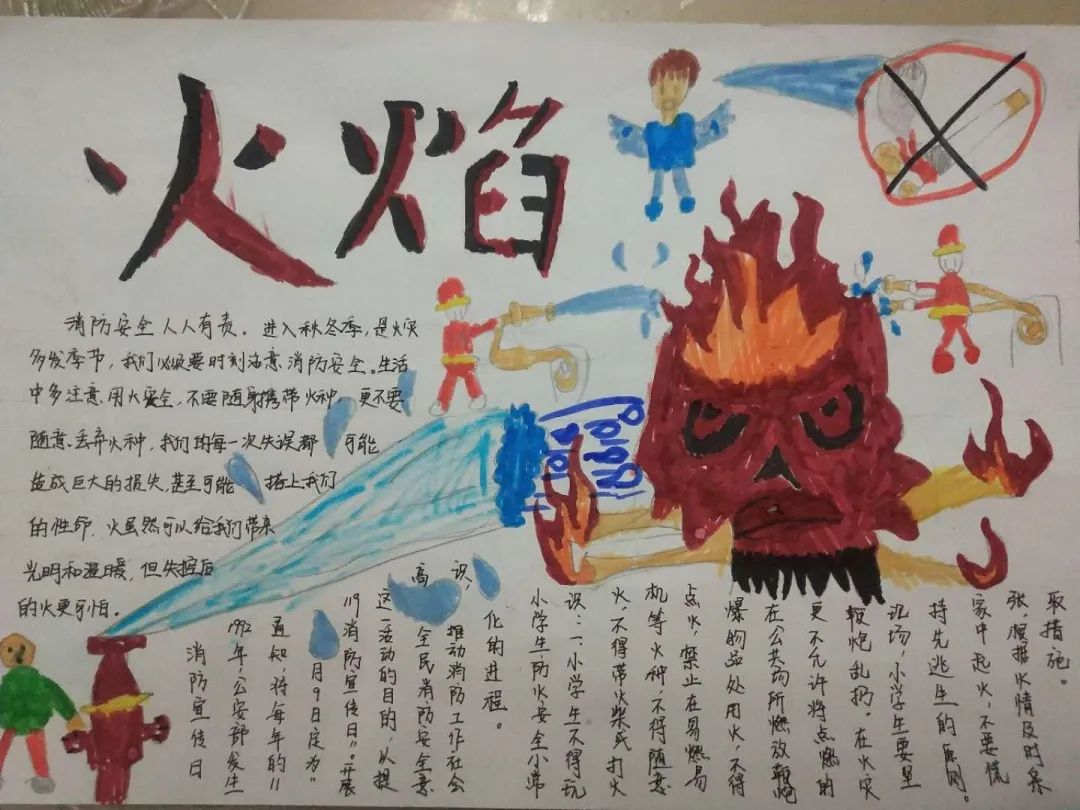 火焰
消防安全人人有责. 进入秋冬季,是火灾
多发季节,我们必须要时刻注意消防安全。生活
中多注意用火安全,不要随身携带火种,更不要
随意丢弃火种,我们的每一次失误都可能
造成巨大的损失,甚至可能搭上我们
的性命. 火虽然可以给我们带来
光明和温暖,但失控后
的火更可怕。
消防宣传日
1992年,公安部发生
通知,将每年的11
月9日定为“
119消防宣传日”.开展
这一活动的目的,以提
高全民消防安全意
识,推动消防工作社会
化的进程。
小学生防火安全小常
识:一、小学生不得玩
火,不得带火柴或打火
机等火种,不得随意
点火,禁止在易燃易
爆物品处用火,不得
在公共场所燃放鞭炮
更不允许将点燃的
鞭炮乱扔. 在火灾
现场,小学生要坚
持先逃生的原则。
家中起火,不要慌
张,根据火情及时采
取措施。